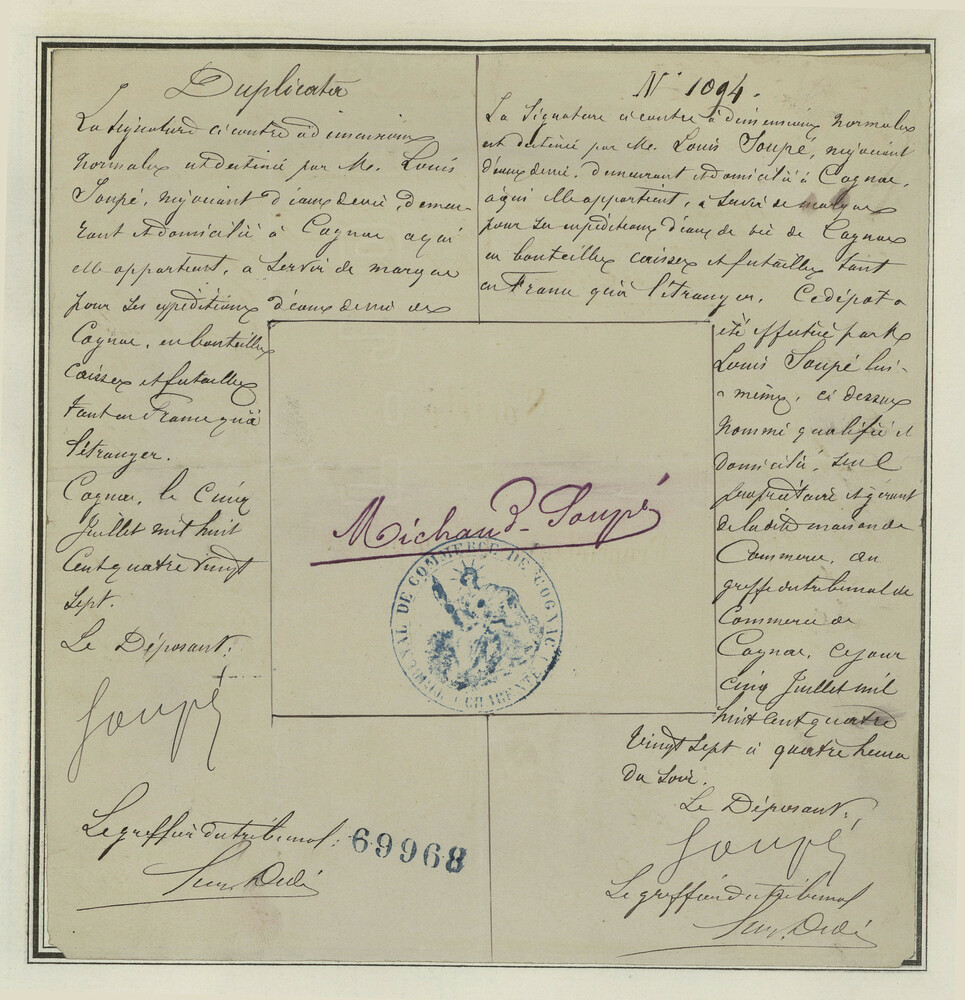 Duplicata
La signature ci contre à dimensions
normales est destinée par Mr. Louis
Soupé, négociant d'eaux de vie, demeu-
rant et domicilié à Cognac à qui
elle appartient, à servir de marque
pour ses expéditions d'eaux de vie de
Cognac, en bouteilles
caisses et futailles
tant en France qu'à
l'étranger.
Cognac, le cinq
Juillet mil huit
cent quatre vingt
sept.
Le Déposant,
Soupé
Le greffier du tribunal:
69968
N° 1094.
La Signature ci contre à dimensions normales
est destinée par Mr. Louis Soupé, négociant
d'eaux de vie, demeurant et domicilié à Cognac,
à qui elle appartient, à servir de marque
pour ses expéditions d'eaux de vie de Cognac
en bouteilles caisses et futailles tant
en France qu'à l'étranger. Ce dépôt a
été effectué par Mr
Louis Soupé lui-
-même, ci dessus
nommé qualifié et
domicilié, seul
propriétaire et gérant
de la dite maison de
Commerce, au
greffe du tribunal de
Commerce de
Cognac, ce jour
cinq Juillet mil
huit cent quatre
vingt sept à quatre heures
du soir.
Le Déposant,
Soupé
Le greffier du tribunal
Michaud-Soupé
TRIBUNAL DE COMMERCE DE COGNAC
CHARENTE